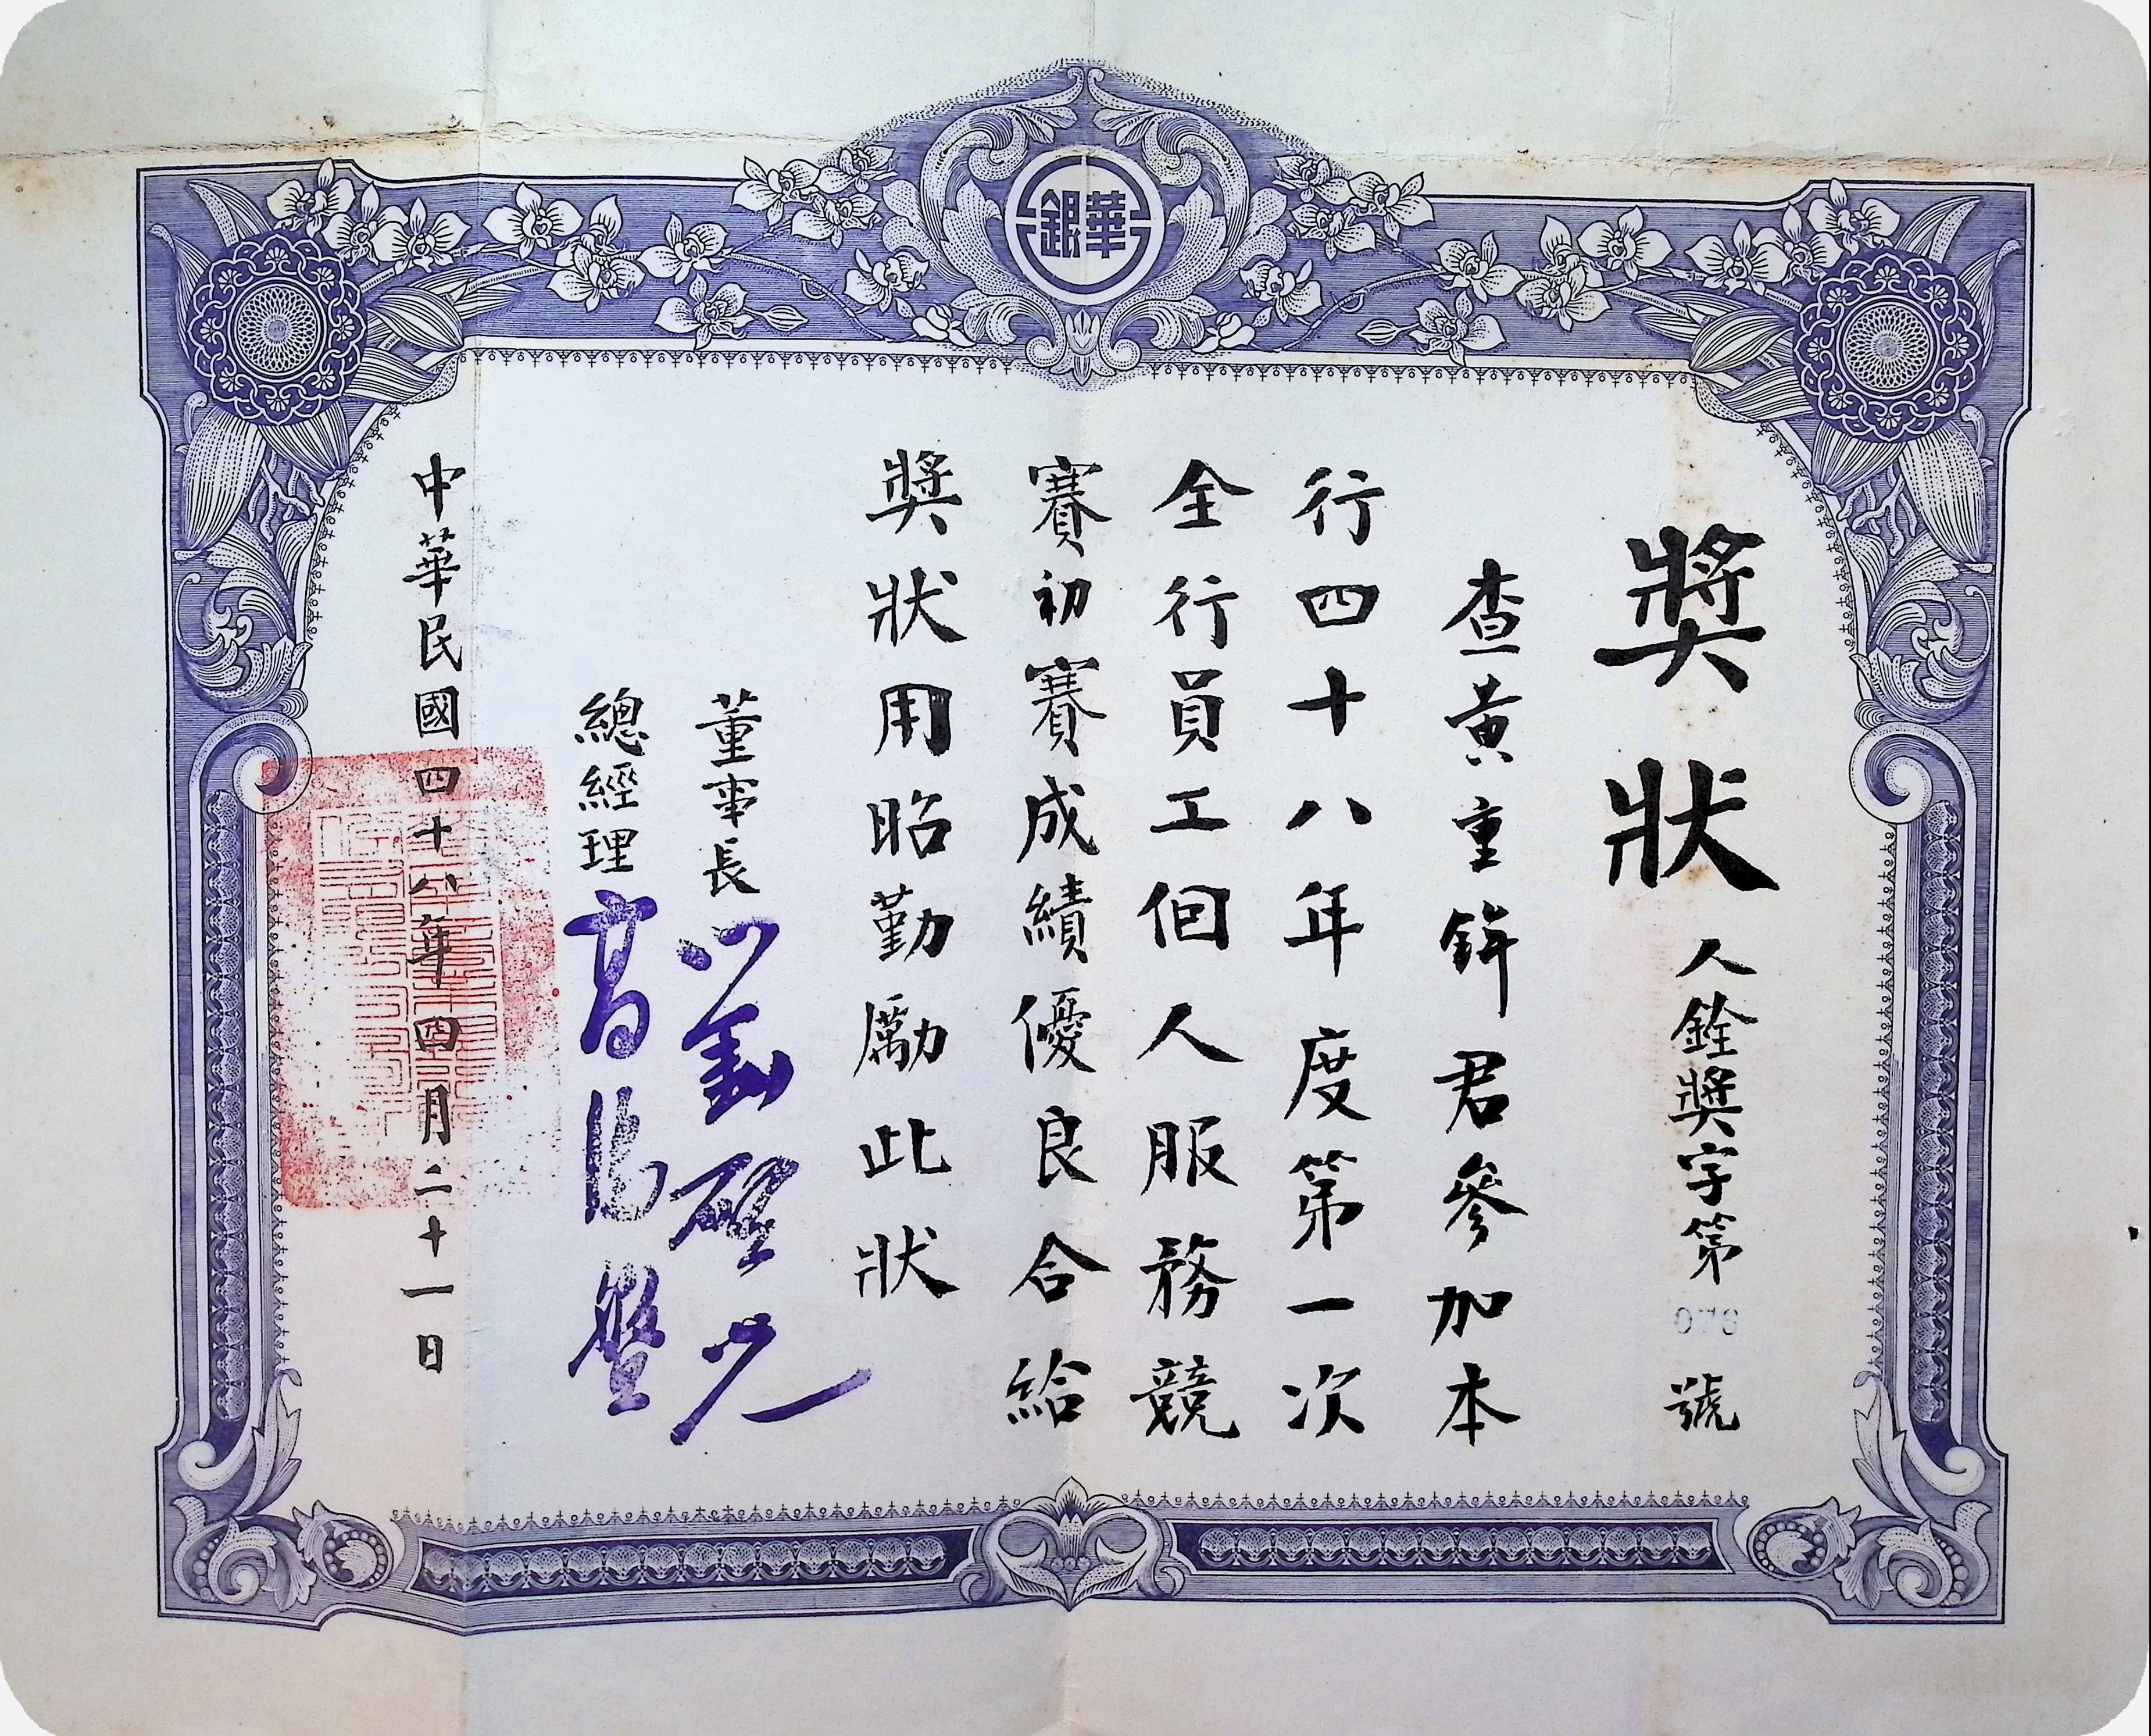 華銀
獎狀
人銓獎字第號
查黃重鉾君參加本
行四十八年度第一次
全行員工個人服務競
賽初賽成績優良合給
獎狀用昭勤勵此狀
董事長 劉啓光
總經理 高湯盤
中華民國四十八年四月二十一日